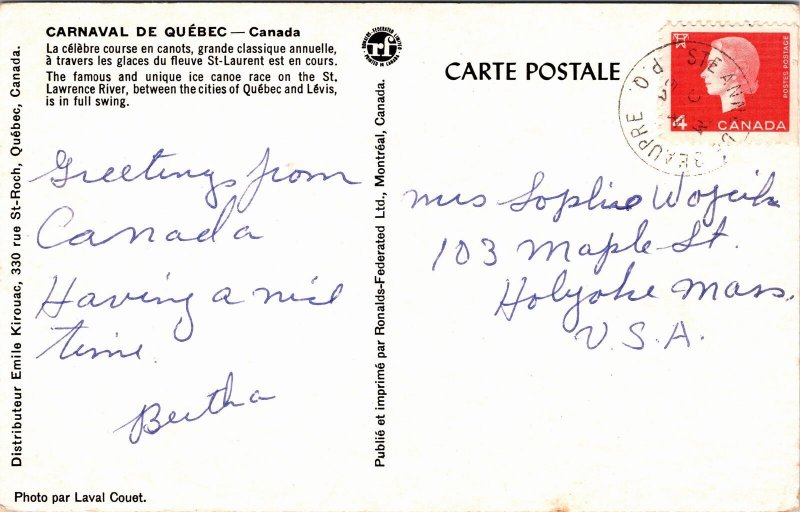 CARNAVAL DE QUÉBEC — Canada
La célèbre course en canots, grande classique annuelle,
à travers les glaces du fleuve St-Laurent est en cours.
The famous and unique ice canoe race on the St.
Lawrence River, between the cities of Québec and Lévis,
is in full swing.
Greetings from
Canada
Having a nice
time.
Bertha
Photo par Laval Couet.
Distributeur Emile Kirouac, 330 rue St-Roch, Québec, Canada.
rf
RONALDS-FEDERATED LIMITED
PRINTED IN CANADA
Publié et imprimé par Ronalds-Federated Ltd., Montréal, Canada.
CARTE POSTALE
4
CANADA
POSTES POSTAGE
P.O.
STE ANNE DE BEAUPRE
Mrs Sophie Wojcik
103 Maple St.
Holyoke Mass.
U.S.A.